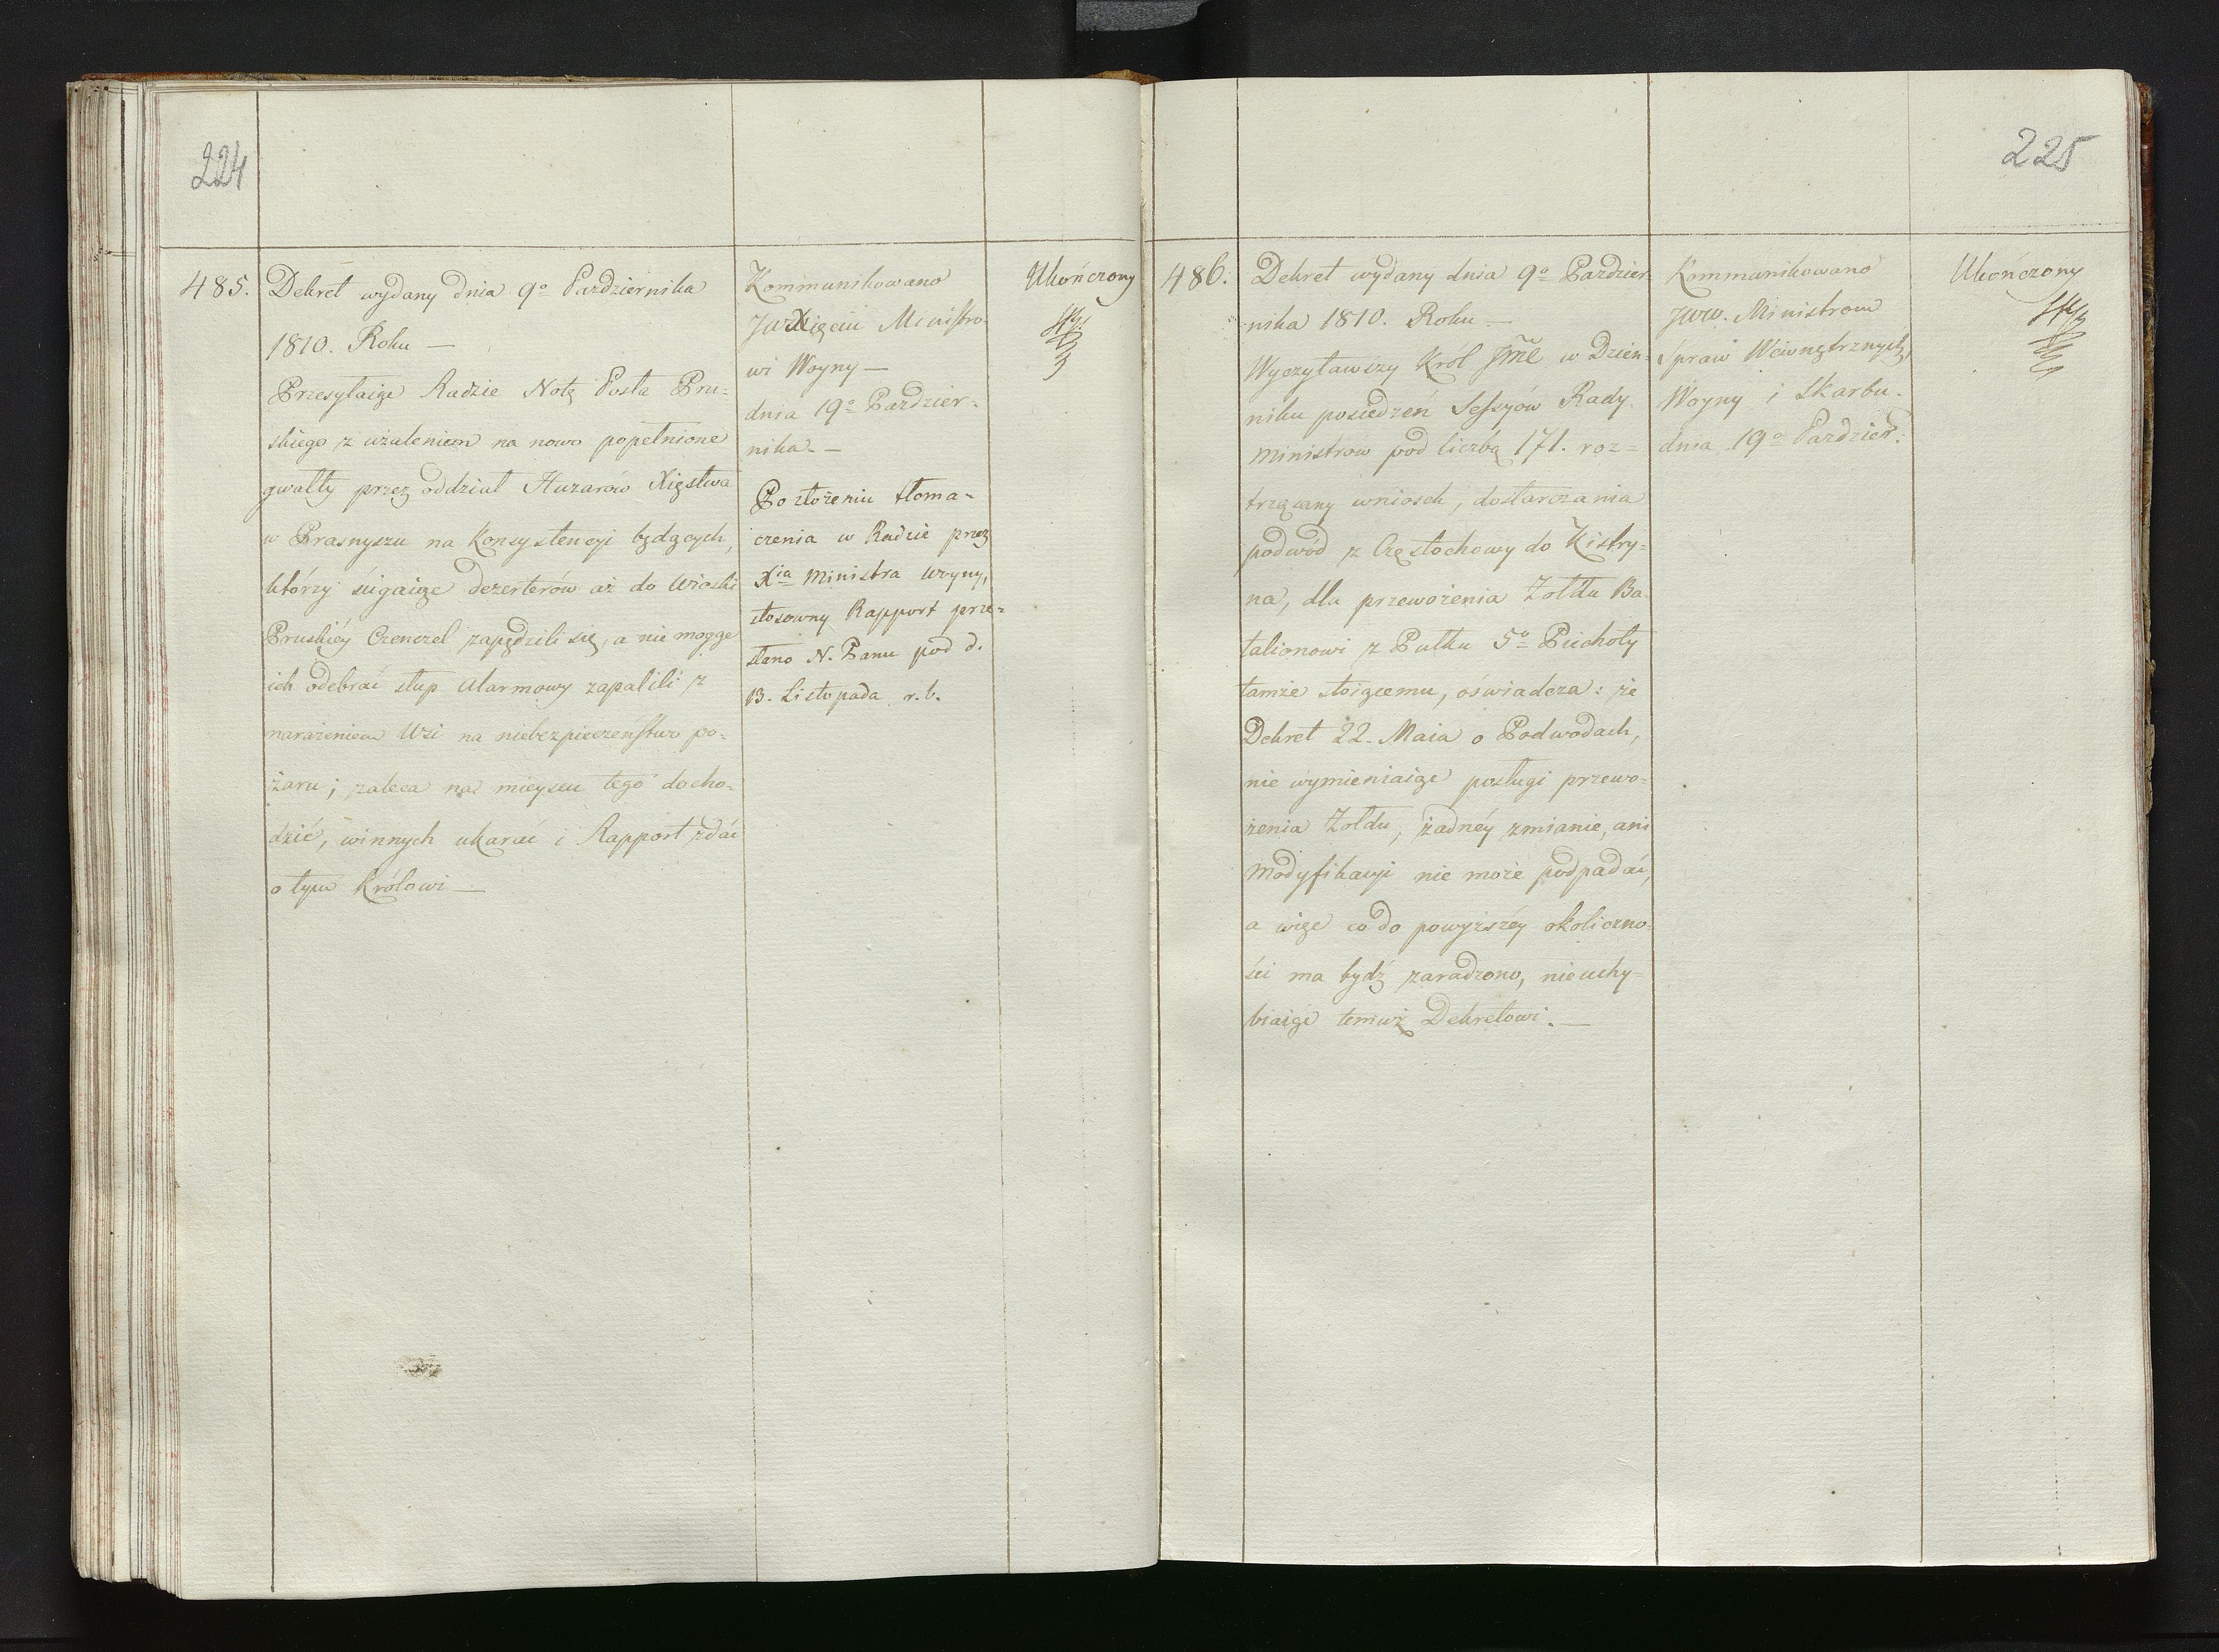 224
485.
Dekret wydany dnia 9o Pazdziernika
1810. Roku —
Przesyłaiąc Radzie Notę Posła Pru-
skiego z użaleniem na nowo popełnione
gwałty przez oddział Huzarów Xięstwa
w Prasnyszu na Konsystencyi będących,
którzy ścigaiąc dezerterów aż do Wioski
Pruskiéy Czenczel zapędzili się, a nie mogąc
ich odebrać słup alarmowy zapalili z
narażeniem Wsi na niebezpieczeństwo po-
żaru; zaleca na mieyscu tego docho-
dzić, winnych ukarać i Rapport zdać
o tym Królowi —
Kommunikowano
JW Xięciu Ministro-
wi Woyny —
dnia 19o Pazdzier-
nika —
Po złożeniu tłoma-
czenia w Radzie przez
Xia Ministra Woyny,
stosowny Rapport prze-
słano N. Panu pod d.
13. Listopada r. b.
Ukończony
225
486.
Dekret wydany dnia 9o Pazdzier-
nika 1810. Roku —
Wyczytawszy Król Jmć w Dzien-
niku posiedzeń Sessyów Rady
Ministrow pod liczbą 171. roz=
trząsany wniosek, dostarczania
podwód z Częstochowy do Kistry=
na, dla przewożenia Żołdu Ba-
talionowi z Pułku 5o Piechoty
tamże stoiącemu, oświadcza: że
Dekret 22. Maia o Podwodach,
nie wymieniaiąc posługi przewo-
żenia Żołdu, żadnéy zmianie, ani
modyfikacyi nie może podpadać,
a więc co do powyższéy okoliczno-
ści ma bydź zaradzono, nieuchy=
biaiąc temuż Dekretowi. —
Kommunikowano
JWW. Ministrom
Spraw Wewnętrznych,
Woyny i Skarbu.
dnia 19o Pazdzier:
Ukończony